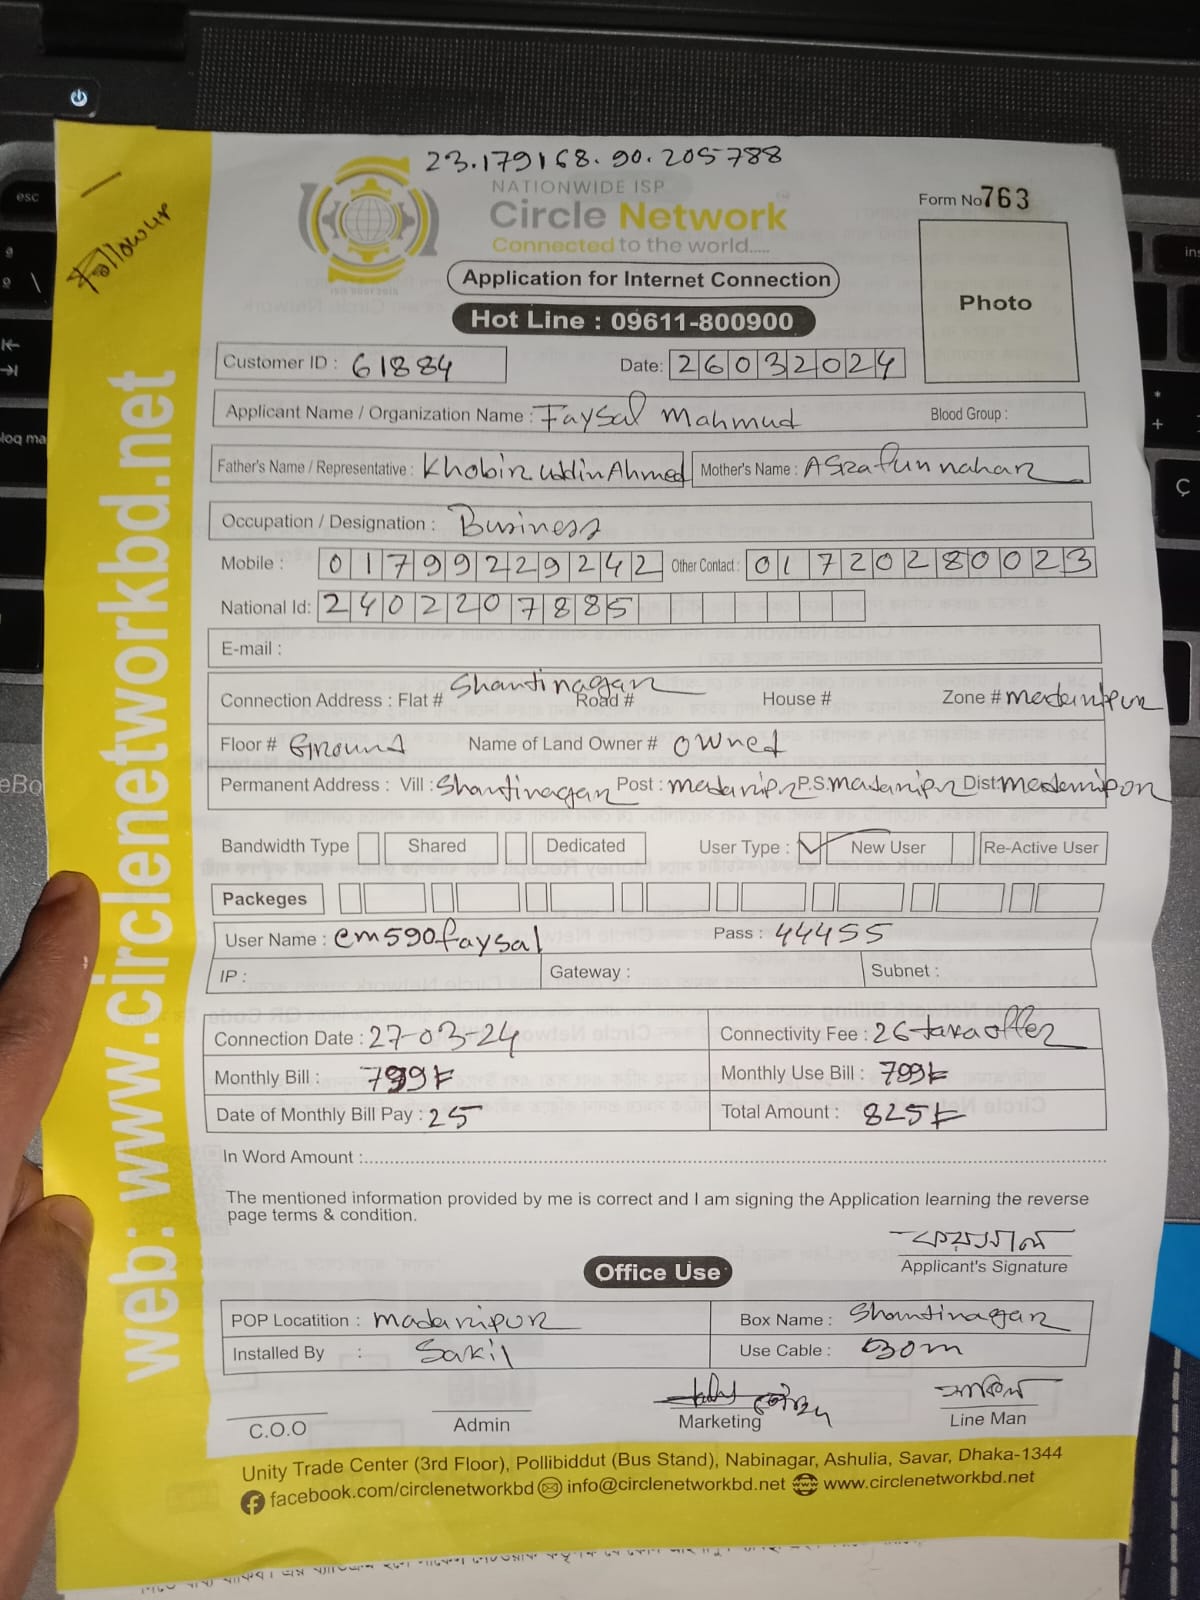 23.179168.90.205788
NATIONWIDE ISP
Circle Network
Connected to the world.....
Form No 763
Followup
ISO 9001:2015
Application for Internet Connection
Photo
Hot Line : 09611-800900
Customer ID : 61884 Date: 26032024
Applicant Name / Organization Name : Faysal Mahmud Blood Group :
Father's Name / Representative : Khobir uddin Ahmed Mother's Name : Asrafun nahar
Occupation / Designation : Business
Mobile : 01799229242 Other Contact : 01720280023
National Id: 2402207885
E-mail :
Connection Address : Flat # Shantinagar Road # House # Zone # madaripur
Floor # Ground Name of Land Owner # owned
Permanent Address : Vill : Shantinagar Post : madaripr P.S. madaripr Dist: madaripor
Bandwidth Type Shared Dedicated User Type : ✓ New User Re-Active User
Packeges
User Name : cm590faysal Pass : 44455
IP : Gateway : Subnet :
Connection Date : 27-03-24 Connectivity Fee : 26 taka offer
Monthly Bill : 799৳ Monthly Use Bill : 799৳
Date of Monthly Bill Pay : 25 Total Amount : 825৳
In Word Amount :
The mentioned information provided by me is correct and I am signing the Application learning the reverse
page terms & condition.
ফয়সাল
Applicant's Signature
Office Use
POP Locatition : madaripur Box Name : Shantinagar
Installed By : Sakil Use Cable : 30m
সাকিল
C.O.O Admin Marketing Line Man
Unity Trade Center (3rd Floor), Pollibiddut (Bus Stand), Nabinagar, Ashulia, Savar, Dhaka-1344
facebook.com/circlenetworkbd info@circlenetworkbd.net www.circlenetworkbd.net
web: www.circlenetworkbd.net
esc